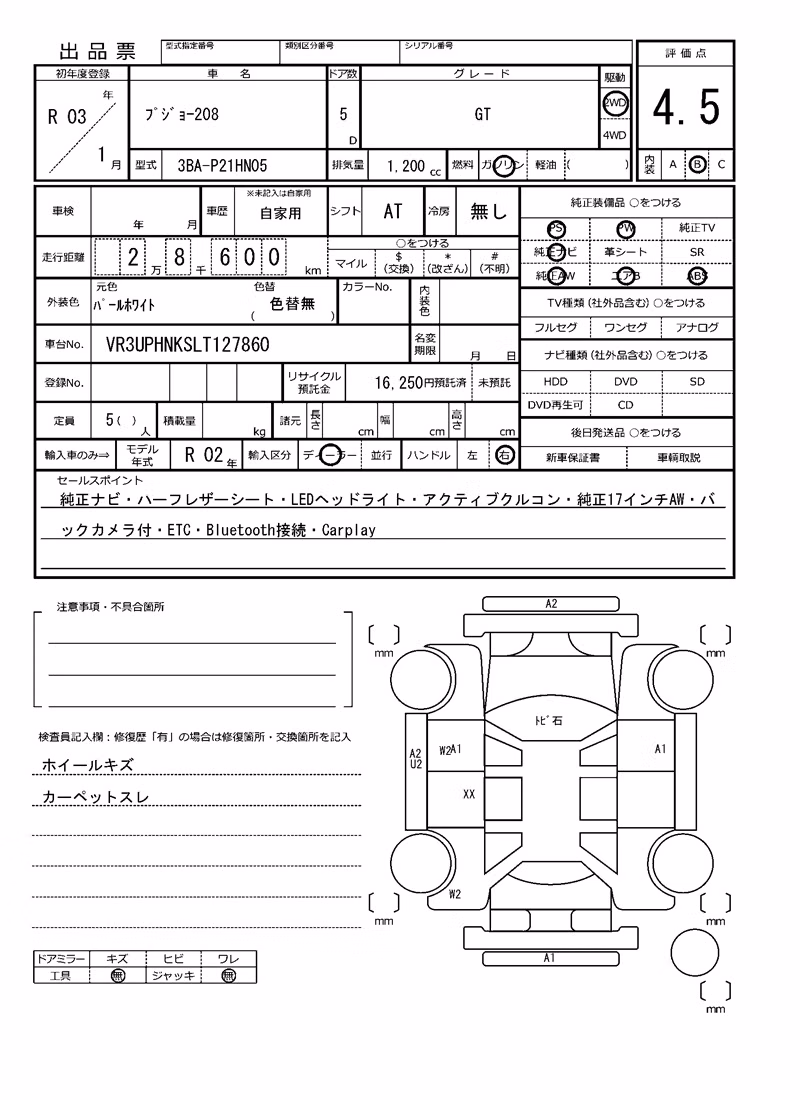 出品票
型式指定番号 類別区分番号 シリアル番号
評価点
初年度登録 車名 ドア数 グレード 駆動
R 03 年 ﾌﾟｼﾞｮｰ208 5 D GT 2WD 4.5
1 月 4WD
型式 3BA-P21HN05 排気量 1,200 cc 燃料 ガソリン 軽油 ( ) 内装 A B C
車検 年 月 車歴 ※未記入は自家用 自家用 シフト AT 冷房 無し
純正装備品 ○をつける
PS PW 純正TV
純正ナビ 革シート SR
純正AW エアB ABS
走行距離 2 万 8 千 6 0 0 km
○をつける
マイル $(交換) *(改ざん) #(不明)
外装色 元色 ﾊﾟｰﾙﾎﾜｲﾄ 色替 ( 色替無 ) カラーNo. 内装色
TV種類(社外品含む)○をつける
フルセグ ワンセグ アナログ
車台No. VR3UPHNKSLT127860 名変期限 月 日
ナビ種類(社外品含む)○をつける
HDD DVD SD
DVD再生可 CD
登録No. リサイクル預託金 16,250円預託済 未預託
定員 5( ) 人 積載量 kg 諸元 長さ cm 幅 cm 高さ cm
後日発送品 ○をつける
新車保証書 車輌取説
輸入車のみ⇒ モデル年式 R 02 年 輸入区分 ディーラー 並行 ハンドル 左 右
セールスポイント
純正ナビ・ハーフレザーシート・LEDヘッドライト・アクティブクルコン・純正17インチAW・バ
ックカメラ付・ETC・Bluetooth接続・Carplay
注意事項・不具合箇所
検査員記入欄：修復歴「有」の場合は修復箇所・交換箇所を記入
ホイールキズ
カーペットスレ
ドアミラー キズ ヒビ ワレ
工具 無 ジャッキ 無
A2
mm mm
ﾄﾋﾞ石
A2
U2
W2A1 A1
XX
W2
mm mm
A1
mm